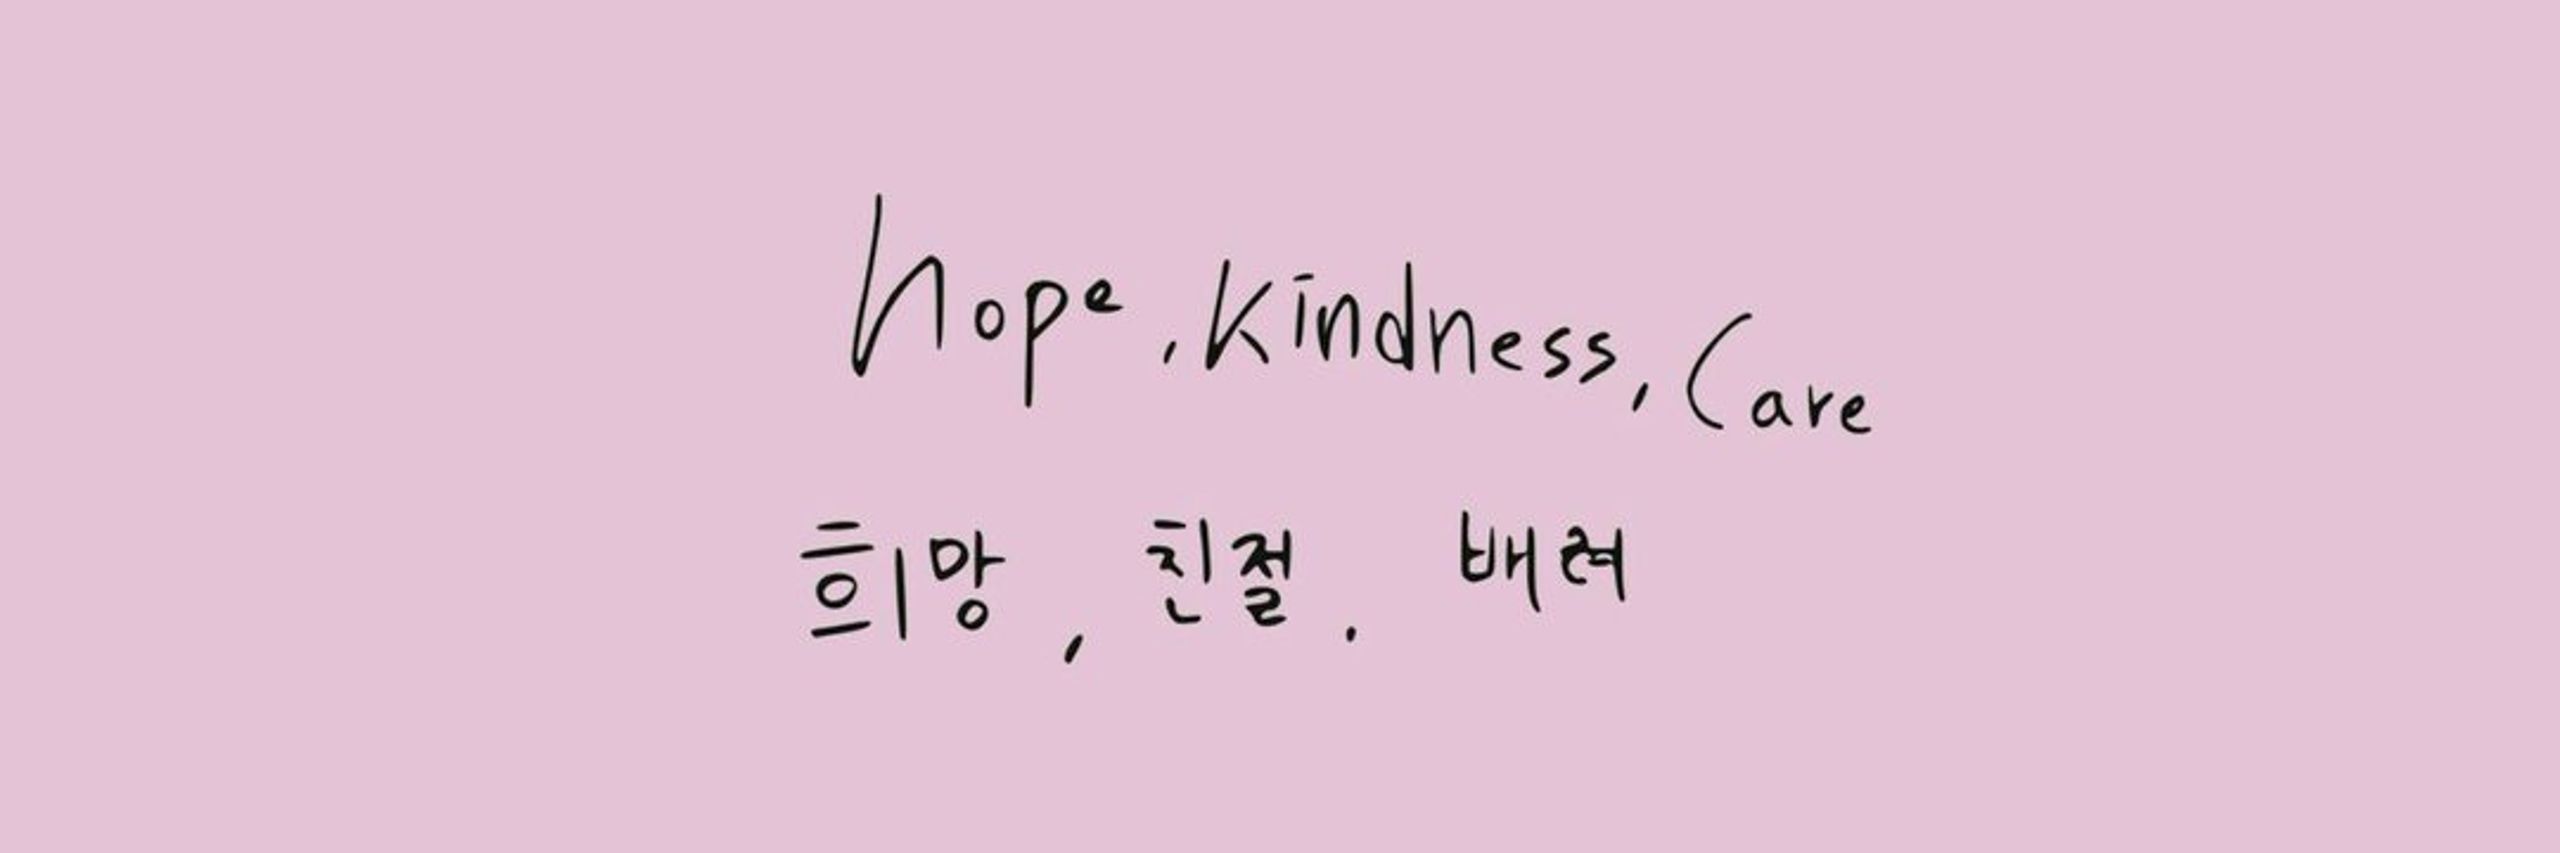 hope, Kindness, Care
희망, 친절. 배려